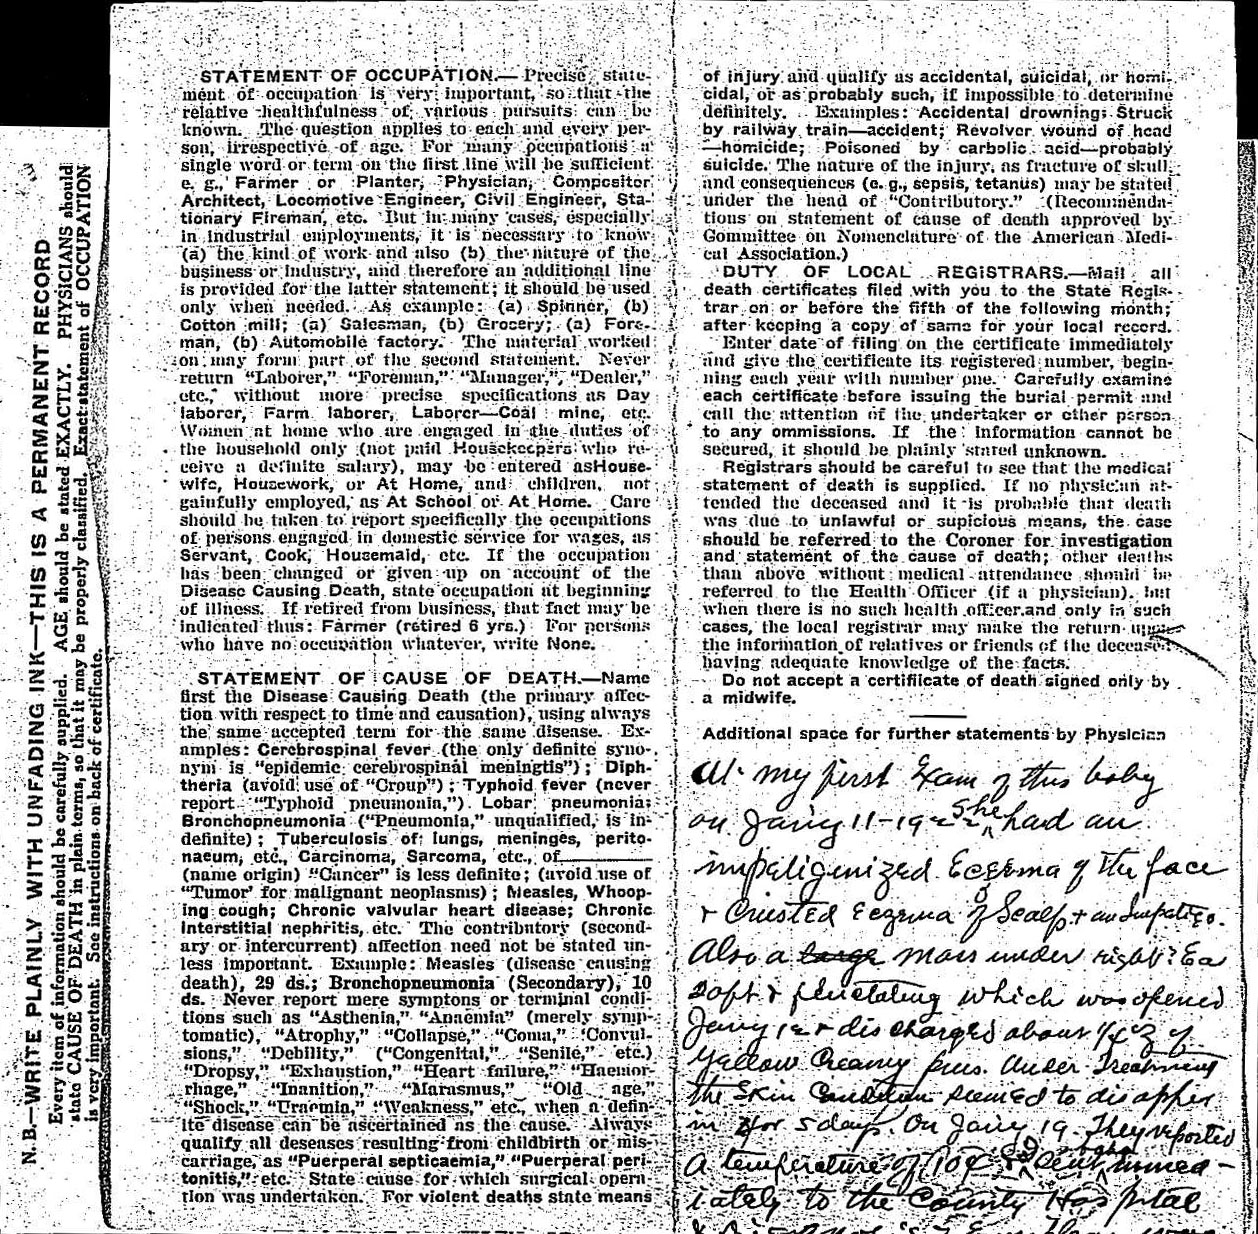 N. B.—WRITE PLAINLY WITH UNFADING INK—THIS IS A PERMANENT RECORD
Every item of information should be carefully supplied. AGE should be stated EXACTLY. PHYSICIANS should
state CAUSE OF DEATH in plain terms, so that it may be properly classified. Exact statement of OCCUPATION
is very important. See instructions on back of certificate.
STATEMENT OF OCCUPATION.—Precise state-
ment of occupation is very important, so that the
relative healthfulness of various pursuits can be
known. The question applies to each and every per-
son, irrespective of age. For many occupations a
single word or term on the first line will be sufficient
e. g., Farmer or Planter, Physician, Compositor
Architect, Locomotive Engineer, Civil Engineer, Sta-
tionary Fireman, etc. But in many cases, especially
in industrial employments, it is necessary to know
(a) the kind of work and also (b) the nature of the
business or industry, and therefore an additional line
is provided for the latter statement; it should be used
only when needed. As example: (a) Spinner, (b)
Cotton mill; (a) Salesman, (b) Grocery; (a) Fore-
man, (b) Automobile factory. The material worked
on may form part of the second statement. Never
return "Laborer," "Foreman," "Manager," "Dealer,"
etc., without more precise specifications as Day
laborer, Farm laborer, Laborer—Coal mine, etc.
Women at home who are engaged in the duties of
the household only (not paid Housekeepers who re-
ceive a definite salary), may be entered asHouse-
wife, Housework, or At Home, and children, not
gainfully employed, as At School or At Home. Care
should be taken to report specifically the occupations
of persons engaged in domestic service for wages, as
Servant, Cook, Housemaid, etc. If the occupation
has been changed or given up on account of the
Disease Causing Death, state occupation at beginning
of illness. If retired from business, that fact may be
indicated thus: Farmer (retired 6 yrs.) For persons
who have no occupation whatever, write None.
STATEMENT OF CAUSE OF DEATH.—Name
first the Disease Causing Death (the primary affec-
tion with respect to time and causation), using always
the same accepted term for the same disease. Ex-
amples: Cerebrospinal fever (the only definite syno-
nym is "epidemic cerebrospinal meningtis"); Diph-
theria (avoid use of "Croup"); Typhoid fever (never
report "Typhoid pneumonia,"). Lobar pneumonia;
Bronchopneumonia ("Pneumonia," unqualified, is in-
definite); Tuberculosis of lungs, meninges, perito-
naeum, etc., Carcinoma, Sarcoma, etc., of
(name origin) "Cancer" is less definite; (avoid use of
"Tumor' for malignant neoplasms); Measles, Whoop-
ing cough; Chronic valvular heart disease; Chronic
interstitial nephritis, etc. The contributory (second-
ary or intercurrent) affection need not be stated un-
less important. Example: Measles (disease causing
death), 29 ds.; Bronchopneumonia (Secondary), 10
ds. Never report mere symptons or terminal condi-
tions such as "Asthenia," "Anaemia" (merely symp-
tomatic), "Atrophy," "Collapse," "Coma," "Convul-
sions," "Debility," ("Congenital," "Senile," etc.)
"Dropsy," "Exhaustion," "Heart failure," "Haemor-
rhage," "Inanition," "Marasmus," "Old age,"
"Shock," "Uraemia," "Weakness," etc., when a defin-
ite disease can be ascertained as the cause. Always
qualify all deseases resulting from childbirth or mis-
carriage, as "Puerperal septicaemia," "Puerperal peri-
tonitis," etc. State cause for which surgical opera-
tion was undertaken. For violent deaths state means
of injury and qualify as accidental, suicidal, or homi-
cidal, or as probably such, if impossible to determine
definitely. Examples: Accidental drowning; Struck
by railway train—accident; Revolver wound of head
—homicide; Poisoned by carbolic acid—probably
suicide. The nature of the injury, as fracture of skull,
and consequences (e. g., sepsis, tetanus) may be stated
under the head of "Contributory." (Recommenda-
tions on statement of cause of death approved by
Committee on Nomenclature of the American Medi-
cal Association.)
DUTY OF LOCAL REGISTRARS.—Mail all
death certificates filed with you to the State Regis-
trar on or before the fifth of the following month;
after keeping a copy of same for your local record.
Enter date of filing on the certificate immediately
and give the certificate its registered number, begin-
ning each year with number one. Carefully examine
each certificate before issuing the burial permit and
call the attention of the undertaker or other person
to any ommissions. If the information cannot be
secured, it should be plainly stated unknown.
Registrars should be careful to see that the medical
statement of death is supplied. If no physician at-
tended the deceased and it is probable that death
was due to unlawful or supicious means, the case
should be referred to the Coroner for investigation
and statement of the cause of death; other deaths
than above without medical attendance should be
referred to the Health Officer (if a physician), but
when there is no such health officer and only in such
cases, the local registrar may make the return upon
the information of relatives or friends of the deceased
having adequate knowledge of the facts.
Do not accept a certificate of death signed only by
a midwife.
Additional space for further statements by Physician
At my first Exam of this baby
on Jany 11-1922 she had an
impetiginized Eczema of the face
+ Crusted Eczema of Scalp + an Impetigo.
Also a large mass under right Ear
soft & fluctating which was opened
Jany 12 & discharged about 1/2 oz of
Yellow Creamy pus. Under Treatment
the Skin Condition seemed to disapper
in 4 or 5 days. On Jany 19. They reported
a temperature of 104 sent immed-
iately to the County Hospital